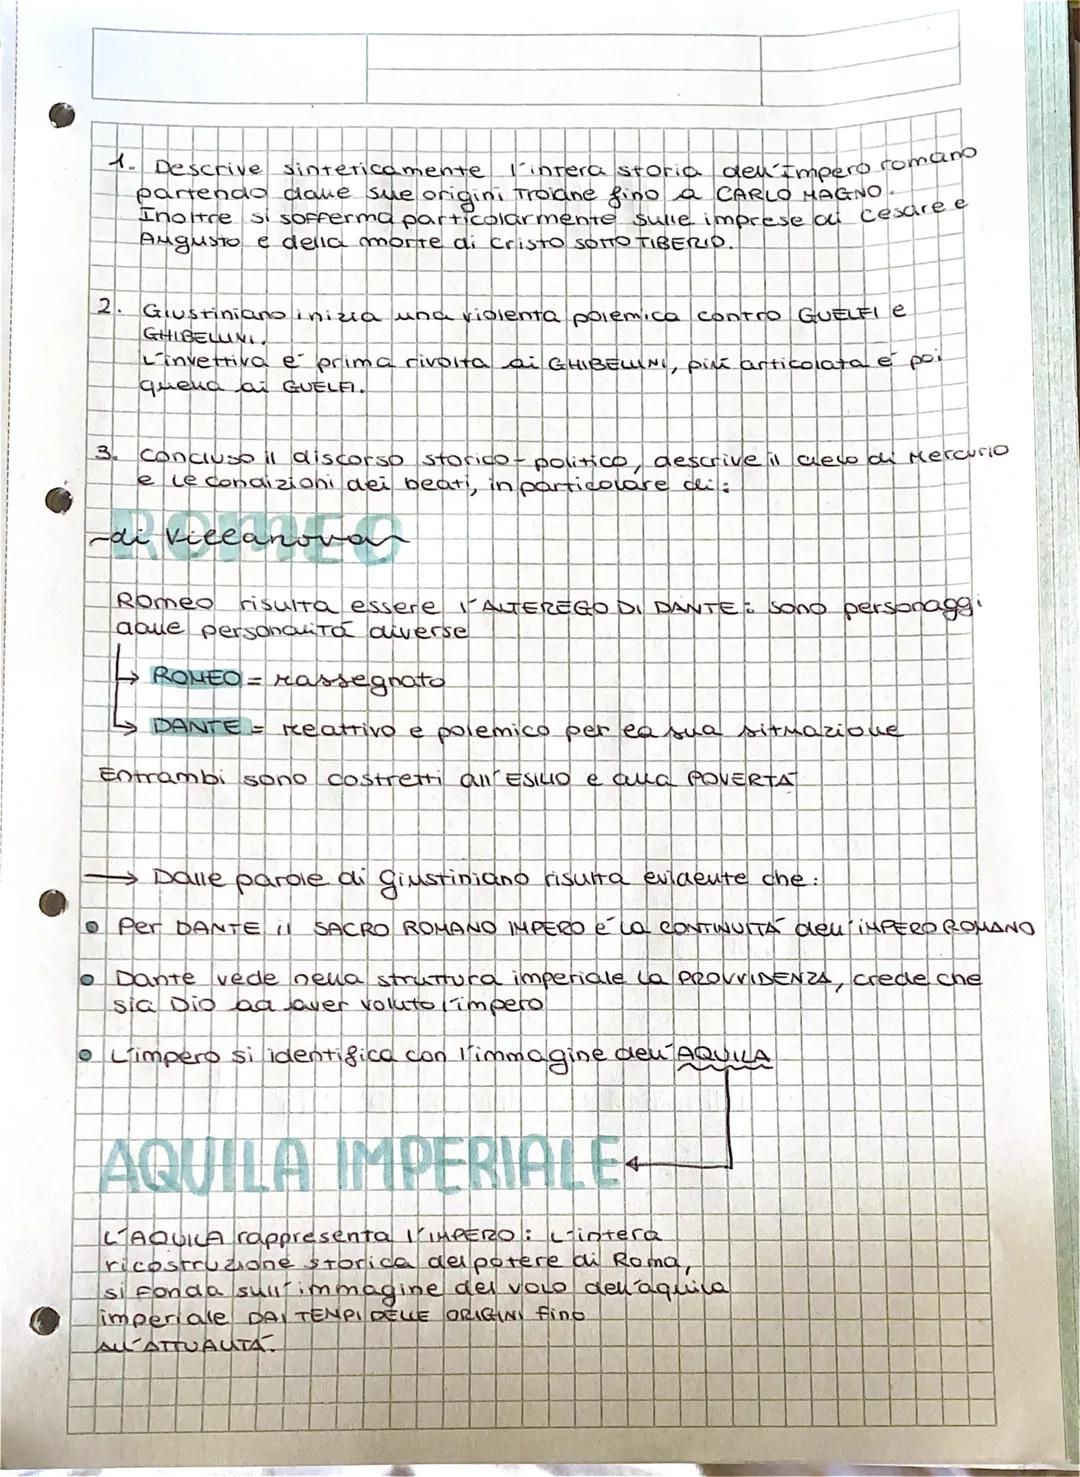 1. Descrive sinteticamente l'intera storia dell'Impero romano
partendo dalle sue origini Troiane fino a CARLO MAGNO.
Inoltre si sofferma particolarmente sulle imprese di Cesare e
Augusto e della morte di Cristo SOTTO TIBERIO.
2. Giustiniano inizia una violenta polemica contro GUELFI e
GHIBELLINI.
L'invettiva è prima rivolta ai GHIBELLINI, più articolata è poi
quella ai GUELFI.
3. Concluso il discorso storico-politico, descrive il cielo di Mercurio
e le condizioni dei beati, in particolare di:
ROMEO
di Villanova
Romeo risulta essere l'ALTEREGO DI DANTE: sono personaggi
dalle personalità diverse
↳ ROMEO = rassegnato
↳ DANTE = reattivo e polemico per la sua situazione
Entrambi sono costretti all'ESILIO e alla POVERTÀ
→ Dalle parole di giustiniano risulta evidente che:
• Per DANTE il SACRO ROMANO IMPERO è la CONTINUITÀ dell'IMPERO ROMANO
• Dante vede nella struttura imperiale la PROVVIDENZA, crede che
sia Dio ad aver voluto l'impero
• L'impero si identifica con l'immagine dell'AQUILA
AQUILA IMPERIALE
L'AQUILA rappresenta l'IMPERO: L'intera
ricostruzione storica del potere di Roma,
si fonda sull'immagine del volo dell'aquila
imperiale DAI TEMPI DELLE ORIGINI fino
ALL'ATTUALITÀ.